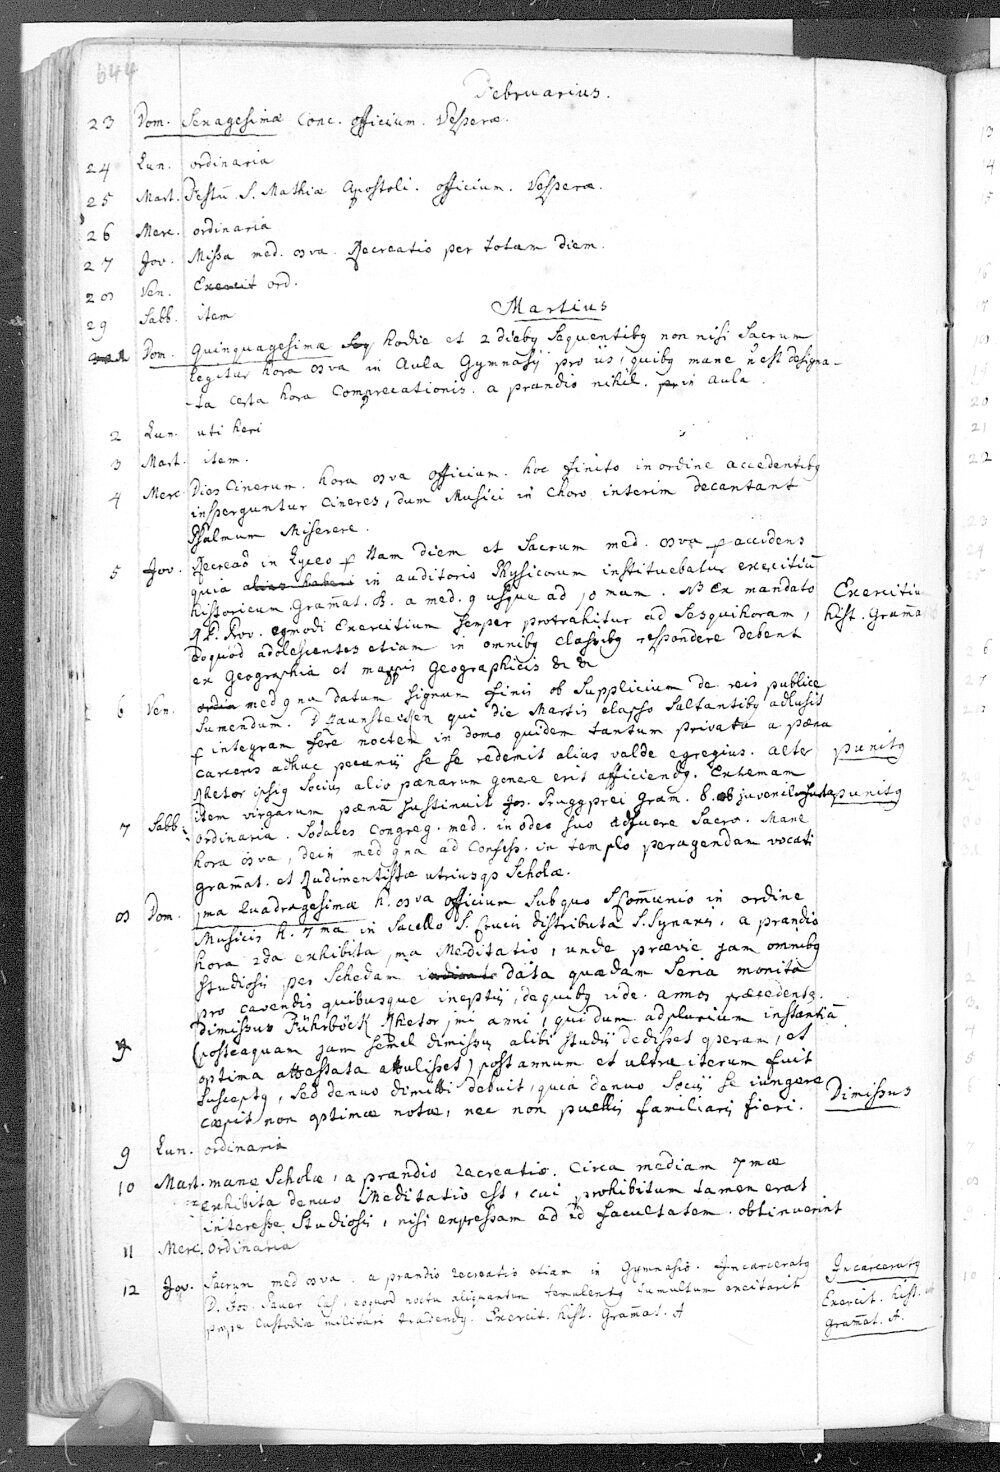 644
Februarius.
23 Dom. Sexagesimæ Conc. officium. Vesperæ.
24 Lun. ordinaria
25 Mart. Festũ S. Mathiæ Apostoli. officium. Vesperæ.
26 Merc. ordinaria
27 Jov. Missa med. 8va. Recreatio per totam diem.
28 Ven. Exercit ord.
29 Sabb. item
Martius
Dom. Quinquagesimæ hodie et 2 diebq sequentibq non nisi Sacrum
legitur hora 8va in Aula Gymnasij pro iis, quibq mane ñ est designa-
ta certa hora Comprecationis. a prandio nihil. in aula.
2 Lun. uti heri
3 Mart. item.
4 Merc. Dies Cinerum. hora 8va officium. hoc finito in ordine accedentibq
insperguntur Cineres, dum Musici in Choro interim decantant
Psalmum Miserere.
5 Jov. Recreaõ in Lyceo p ttam diem et Sacrum med. 8va p accidens
quia alias haberi in auditorio Physicorum instituebatur exercitiũ
historicum Gram̃at. B. a med. 9 usque ad 10mam. NB Ex mandato
R P. Prov. eqmodi Exercitium semper protrahitur ad sesquihoram,
eoquod adolescentes etiam in omnibq classibq respondere debent
ex Geographia et mappis Geographicis &c &c
Exercitiu
hist. Gram̃a
6 Ven. ordin med 9na datum signum finis ob supplicium de reis publice
sumendum. D Haunsteissen qui die Martis elapso saltantibq adlusit
p integram fere noctem in domo quidem tantum privata a pæna
carceris adhuc pecunijs se se redemit alias valde egregius. alter
Rhetor ipsiq socius alio pænarum genere erit afficiendq. Extemam
item virgarum pænã sustinuit Jos. Pruggprei Gram. B. ob juvenil
punitq
punitq
7 Sabb. ordinaria. Sodales Congreg. med. in odeo suo adfuere Sacro. Mane
hora 8va, dein med 9na ad Confess. in templo peragendam vocati
gram̃at. et Rudimentistæ utriusqs Scholæ.
8 Dom. 1ma Quadragesimæ h. 8va officium sub quo SSCom̃unio in ordine
Musicis h. 7ma in Sacello S. Crucis distributa S. Synaxis. a prandio
hora 2da exhibita 1ma Meditatio, unde prævie jam omnibq
studiosis per Schedam indicat data quædam seria monita
pro cavendis quibusque ineptijs, de quibq vide annos præcedentq.
Dimissus Führböck Rhetor 1mi anni, qui dum ad plurium instantiã
(posteaquam jam semel dimissus alibi studijs dedisset operam, et
optima attestata attulisset) post annum et ultra iterum fuit
susceptq, sed denuo dimitti debuit, quia denuo socijs se iungere
cæpit non optimæ notæ, nec non puellis familiaris fieri.
Dimissus
9 Lun. ordinaria
10 Mart. mane Scholæ, a prandio recreatio. Circa mediam 7mæ
exhibita denuo Meditatio est, cui prohibitum tamen erat
interesse studiosis, nisi expressam ad id facultatem obtinuerint
11 Merc. ordinaria
12 Jov. Sacrum med 8va. a prandio recreatio etiam in Gymnasio. Incarceratq
D. Jos. Saver Cas. eoquod noctu aliquantum temulentq tumultum excitarit
prope Custodiæ militari tradendq. Exercit. hist. Gram̃at. A
Incarceratq
Exercit. hist.
Gram̃at. A.